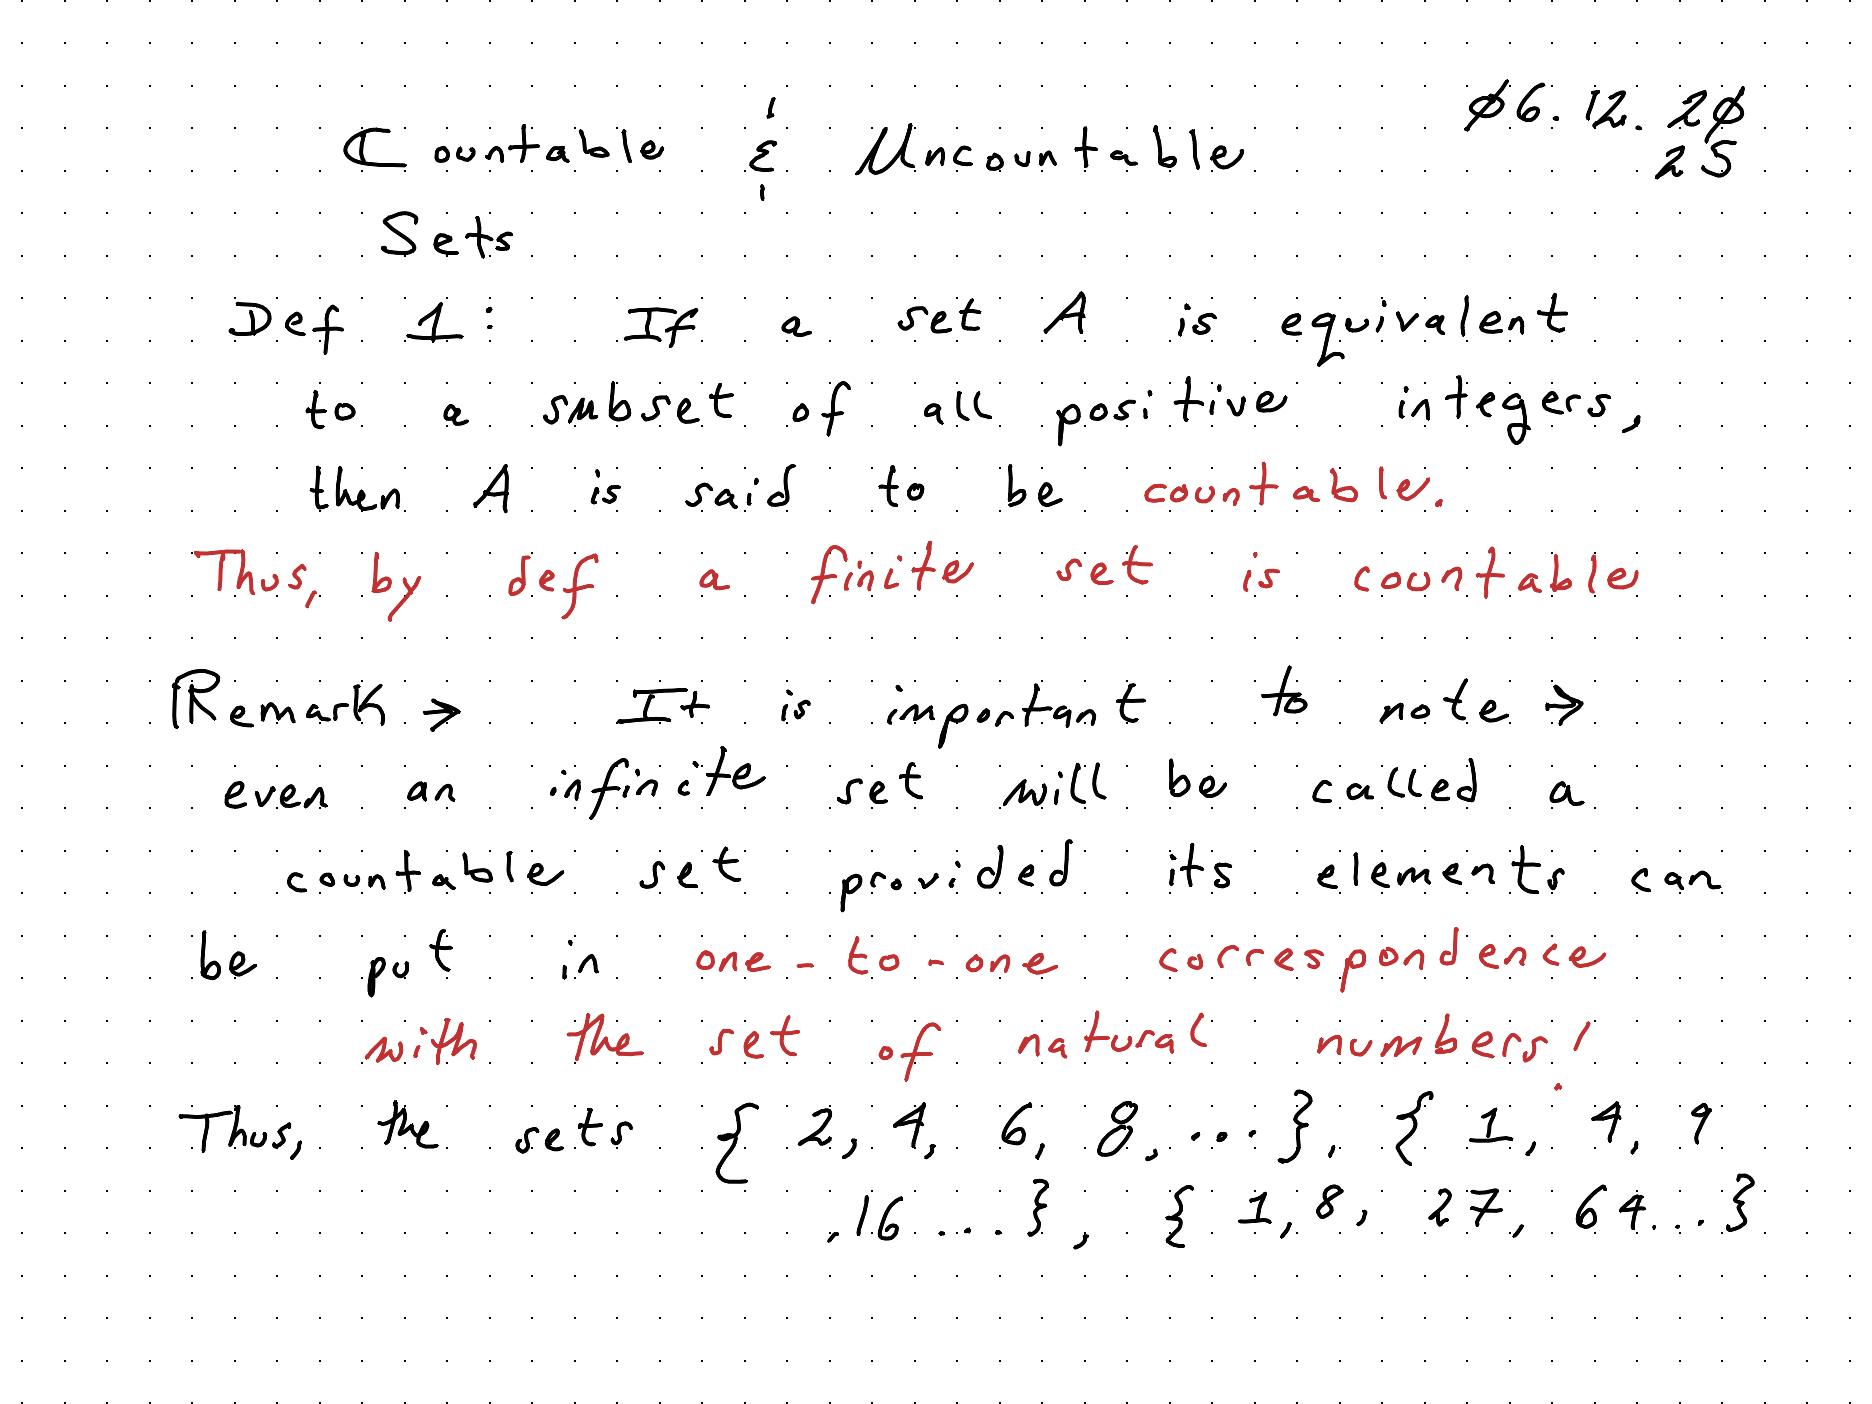 Countable & Uncountable
06.12.20
25
Sets
Def 1: If a set A is equivalent
to a subset of all positive integers,
then A is said to be countable.
Thus, by def a finite set is countable
Remark → It is important to note →
even an infinite set will be called a
countable set provided its elements can
be put in one-to-one correspondence
with the set of natural numbers!
Thus, the sets { 2, 4, 6, 8, ... }, { 1, 4, 9
, 16 ... }, { 1, 8, 27, 64 ... }